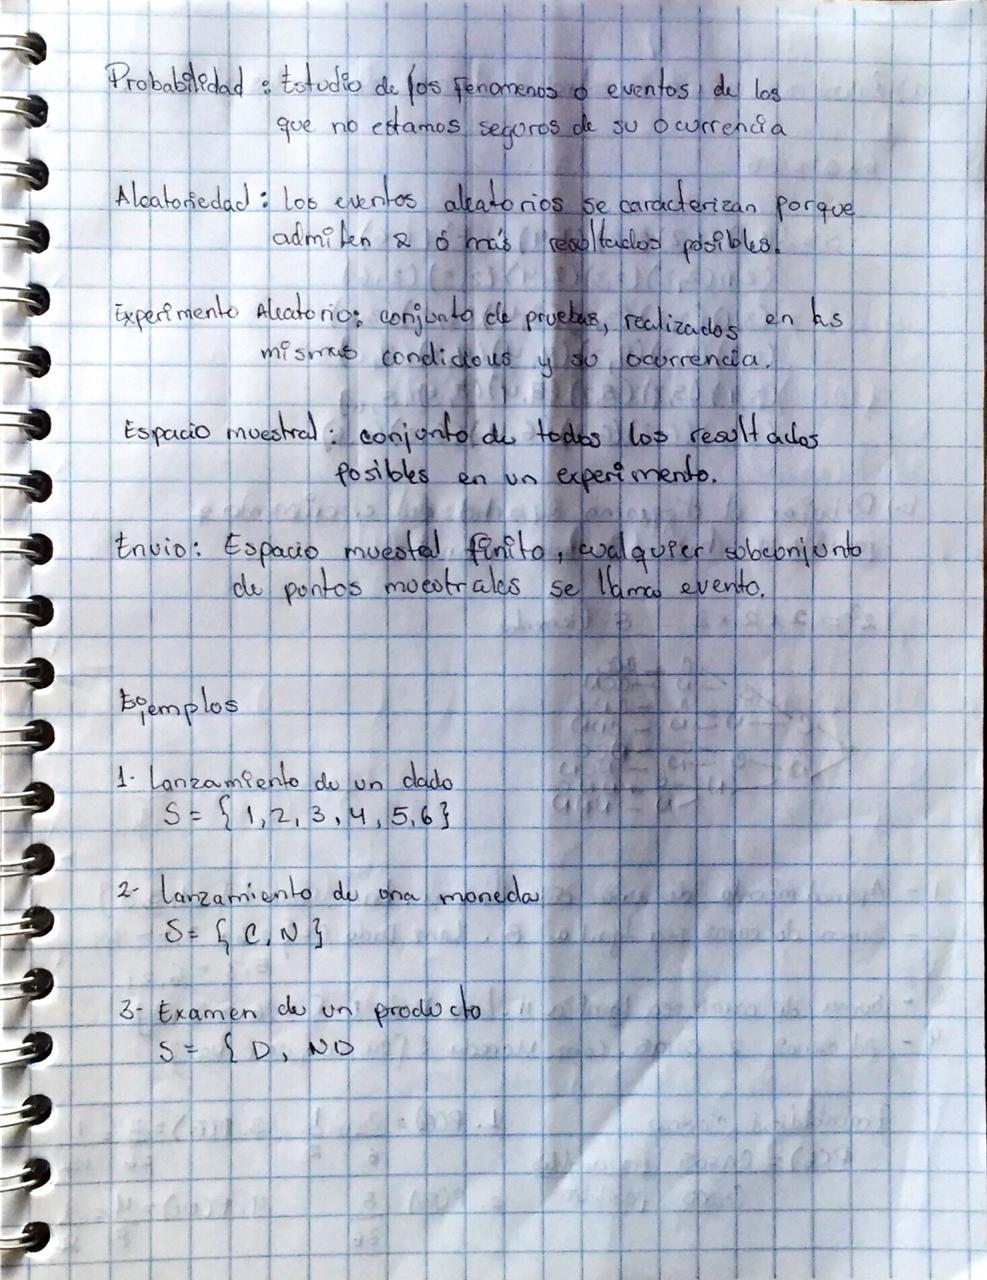 Probabilidad : Estudio de los fenomenos o eventos de los
que no estamos seguros de su ocurrencia
Aleatoriedad : Los eventos aleatorios se caracterizan porque
admiten 2 ó más resultados posibles.
Experimento Aleatorio: conjunto de pruebas, realizados en las
mismas condicious y su ocurrencia.
Espacio muestral : conjonto de todos los resultados
posibles en un experimento.
Envio: Espacio muestal finito, cualquier subconjunto
de pontos muestrales se llama evento.
Ejemplos
1- Lanzamiento de un dado
S = { 1, 2, 3, 4, 5, 6 }
2- Lanzamiento de una moneda
S = { C, N }
3- Examen de un producto
S = { D, ND